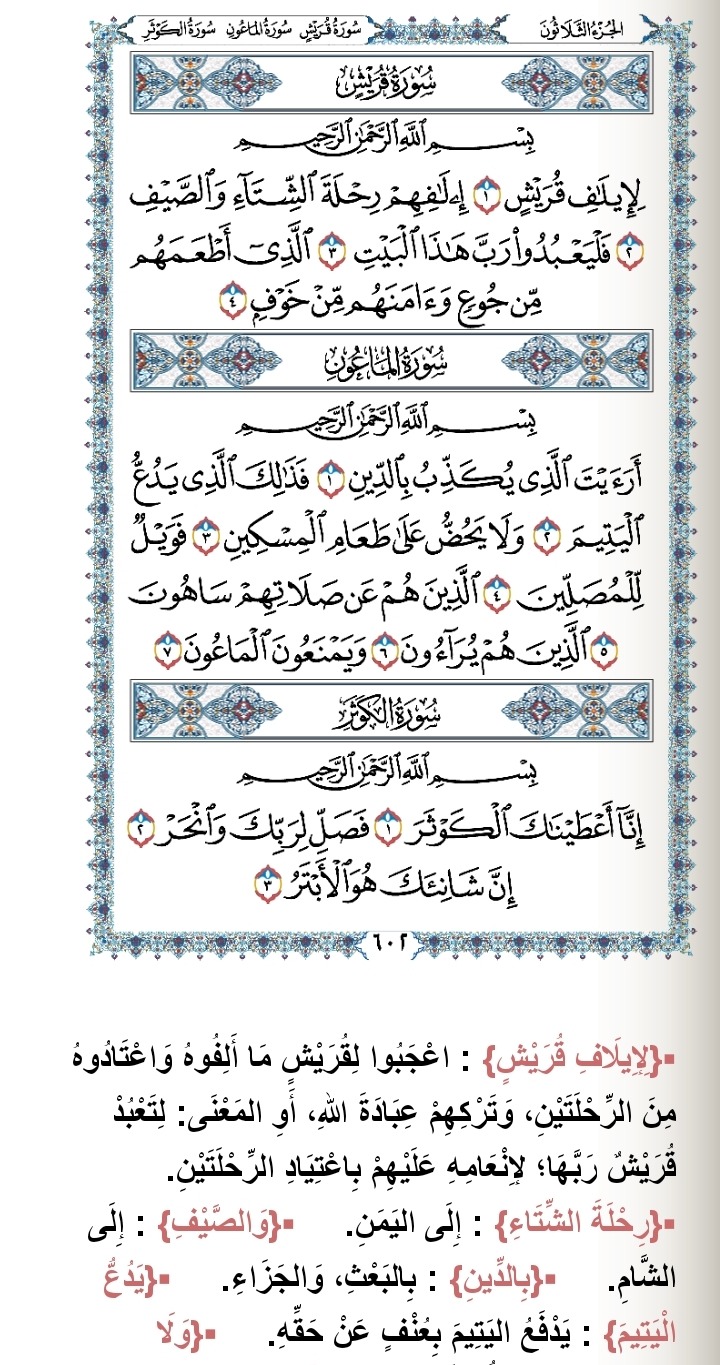 الجزء الثلاثون سورة قريش سورة الماعون سورة الكوثر
سورة قريش
بِسْمِ ٱللَّهِ ٱلرَّحْمَٰنِ ٱلرَّحِيمِ
لِإِيلَٰفِ قُرَيْشٍ ١ إِۦلَٰفِهِمْ رِحْلَةَ ٱلشِّتَآءِ وَٱلصَّيْفِ
٢ فَلْيَعْبُدُوا۟ رَبَّ هَٰذَا ٱلْبَيْتِ ٣ ٱلَّذِىٓ أَطْعَمَهُم
مِّن جُوعٍ وَءَامَنَهُم مِّنْ خَوْفٍۭ ٤
سورة الماعون
بِسْمِ ٱللَّهِ ٱلرَّحْمَٰنِ ٱلرَّحِيمِ
أَرَءَيْتَ ٱلَّذِى يُكَذِّبُ بِٱلدِّينِ ١ فَذَٰلِكَ ٱلَّذِى يَدُعُّ
ٱلْيَتِيمَ ٢ وَلَا يَحُضُّ عَلَىٰ طَعَامِ ٱلْمِسْكِينِ ٣ فَوَيْلٌ
لِّلْمُصَلِّينَ ٤ ٱلَّذِينَ هُمْ عَن صَلَاتِهِمْ سَاهُونَ
٥ ٱلَّذِينَ هُمْ يُرَآءُونَ ٦ وَيَمْنَعُونَ ٱلْمَاعُونَ ٧
سورة الكوثر
بِسْمِ ٱللَّهِ ٱلرَّحْمَٰنِ ٱلرَّحِيمِ
إِنَّآ أَعْطَيْنَٰكَ ٱلْكَوْثَرَ ١ فَصَلِّ لِرَبِّكَ وَٱنْحَرْ ٢
إِنَّ شَانِئَكَ هُوَ ٱلْأَبْتَرُ ٣
٦٠٢
▪{لِإِيلَافِ قُرَيْشٍ} : اعْجَبُوا لِقُرَيْشٍ مَا أَلِفُوهُ وَاعْتَادُوهُ
مِنَ الرِّحْلَتَيْنِ، وَتَرْكِهِمْ عِبَادَةَ اللهِ، أَوِ المَعْنَى: لِتَعْبُدْ
قُرَيْشٌ رَبَّهَا؛ لِإنْعَامِهِ عَلَيْهِمْ بِاعْتِيَادِ الرِّحْلَتَيْنِ.
▪{رِحْلَةَ الشِّتَاءِ} : إِلَى اليَمَنِ. ▪{وَالصَّيْفِ} : إِلَى
الشَّامِ. ▪{بِالدِّينِ} : بِالبَعْثِ، وَالجَزَاءِ. ▪{يَدُعُّ
الْيَتِيمَ} : يَدْفَعُ اليَتِيمَ بِعُنْفٍ عَنْ حَقِّهِ. ▪{وَلَا